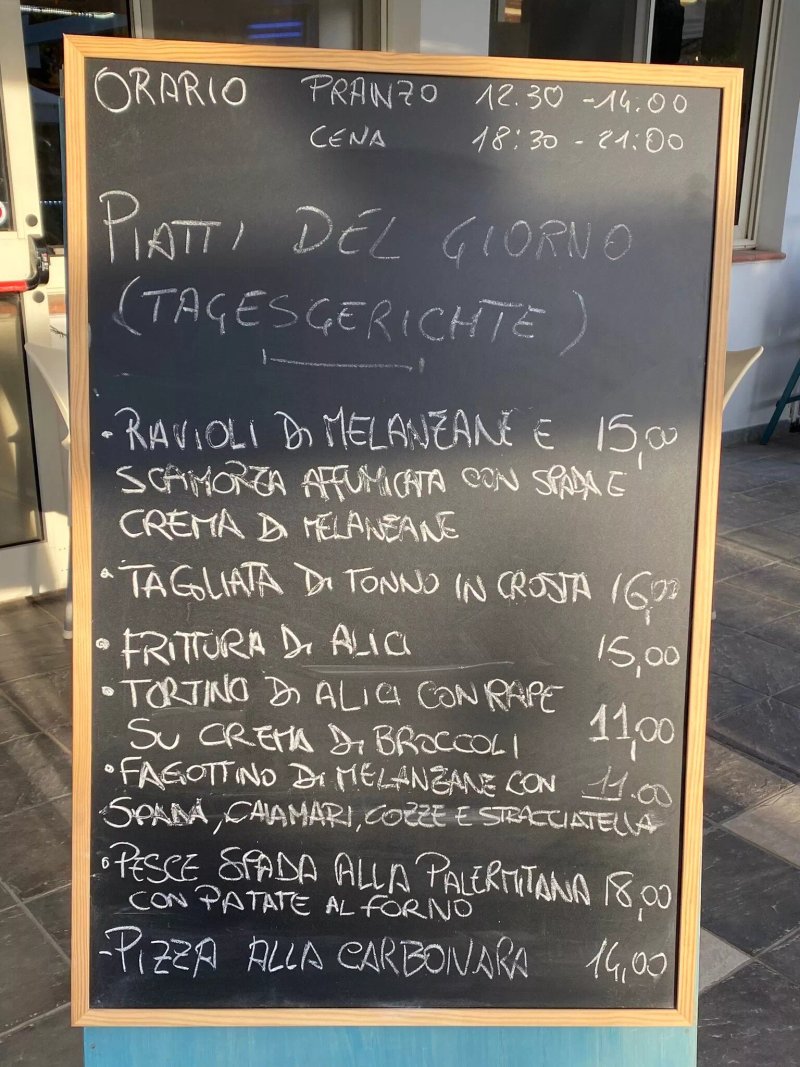 ORARIO PRANZO 12.30 - 14.00
CENA 18:30 - 21:00
PIATTI DEL GIORNO
(TAGESGERICHTE)
• RAVIOLI DI MELANZANE E 15,00
SCAMORZA AFFUMICATA CON SPADA E
CREMA DI MELANZANE
• TAGLIATA DI TONNO IN CROSTA 16,00
• FRITTURA DI ALICI 15,00
• TORTINO DI ALICI CON RAPE
SU CREMA DI BROCCOLI 11,00
• FAGOTTINO DI MELANZANE CON 11.00
SPADA, CALAMARI, COZZE E STRACCIATELLA
• PESCE SPADA ALLA PALERMITANA 18,00
CON PATATE AL FORNO
- PIZZA ALLA CARBONARA 14,00